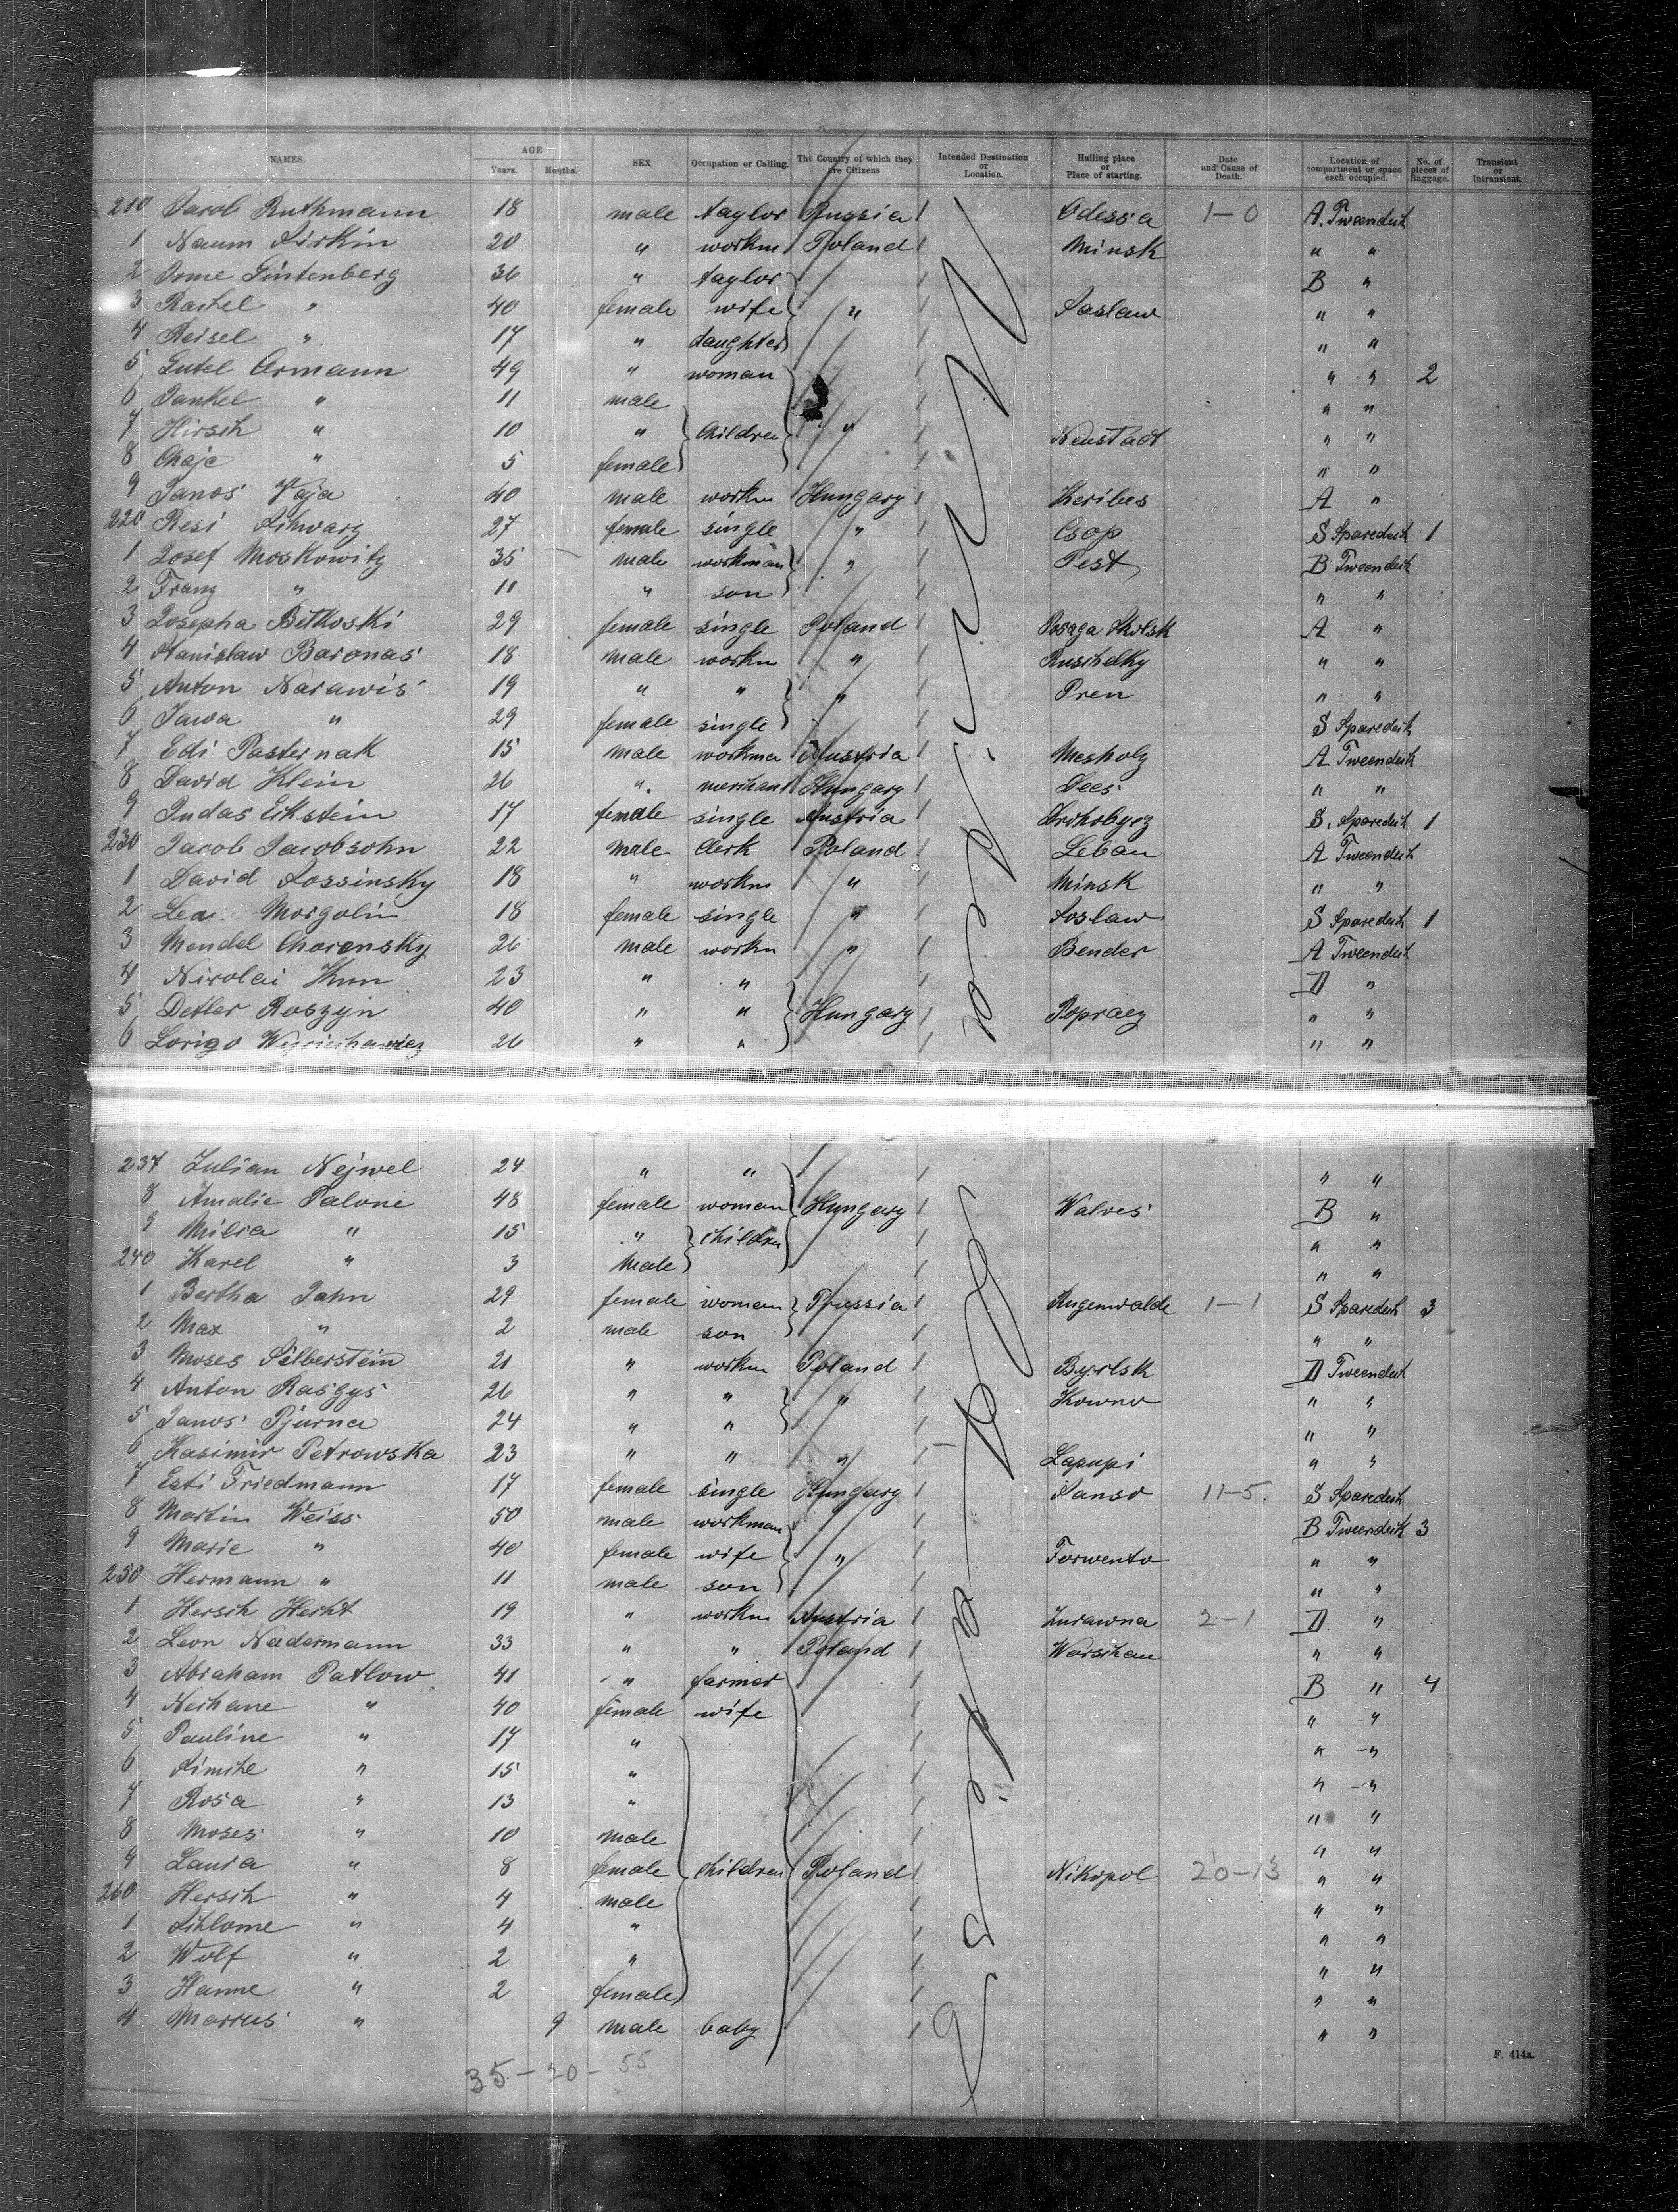 NAMES. AGE Years. Months. SEX Occupation or Calling. The Country of which they are Citizens Intended Destination or Location. Hailing place or Place of starting. Date and Cause of Death. Location of compartment or space each occupied. No. of pieces of Baggage. Transient or Intransient.
210 Jacob Ruthmann 18 male taylor Russia Odessa 1-0 A. Tweendeck
1 Naum Sirkin 20 " workm Poland Minsk " "
2 36 " taylor B "
3 Rachel " 40 female wife " Saslaw " "
4 Reisel " 17 " daughter " "
5 Gutel 49 " woman " " 2
6 Jankel " 11 male " "
7 Hirsch " 10 " Children " Neustadt " "
8 Chaje " 5 female " "
9 Janos Vaja 40 male workm Hungary A "
220 Resi Schwarz 27 female single " Csop S Sparedeck 1
1 Josef Moskowitz 35 male workman " Pest B Tweendeck
2 Franz " 11 " son " "
3 Josepha Betkoski 29 female single Poland A "
4 Stanislaw Baronas 18 male workm " " "
5 Anton Narawis 19 " " " Pren " "
6 " 29 female single S Sparedeck
7 Edi Pasternak 15 male workma Austria A Tweendeck
8 David Klein 26 " merchant Hungary Dees " "
9 Judas Ekstein 17 female single Austria S. Sparedeck 1
230 Jacob Jacobsohn 22 male Clerk Poland Leban A Tweendeck
1 David Sossinsky 18 " workm " Minsk " "
2 Lea Morgolin 18 female single " Soslaw S Sparedeck 1
3 Mendel Chorensky 26 male workm " Bender A Tweendeck
4 Nicolai 23 " " D "
5 Roszyn 40 " " Hungary " "
6 26 " " " "
237 Julian Nejwel 24 " " " "
8 Amalie Palone 48 female woman Hungary B "
9 Milia " 15 " children " "
240 Karel " 3 Male " "
1 Bertha Jahn 29 female woman Prussia Rugenwalde 1-1 S Sparedeck 3
2 Max " 2 male son " "
3 Moses Silberstein 21 " workm Poland D Tweendeck
4 Anton Rasgys 26 " " " Kowno " "
5 Janos Pjurna 24 " " " "
6 Kasimir Petrowska 23 " " " Lapupi " "
7 Esti Friedmann 17 female single Hungary 11-5. S Sparedeck
8 Martin Weiss 50 male workman B Tweendeck 3
9 Marie " 40 female wife " " "
250 Hermann " 11 male son " "
1 Hersch Hecht 19 " workm Austria Zurawna 2-1 D "
2 Leon Nadermann 33 " " Poland Warschau " "
3 Abraham Patlow 41 " farmer B " 4
4 Nechane " 40 female wife " "
5 Pauline " 17 " " "
6 " 15 " " "
7 Rosa " 13 " " "
8 Moses " 10 male " "
9 Laura " 8 female children Poland Nikopol 20-13 " "
260 Hersch " 4 male " "
1 Schlome " 4 " " "
2 Wolf " 2 " " "
3 Hanne " 2 female " "
4 Marcus " 9 male baby " "
35-20-55
F. 414a.